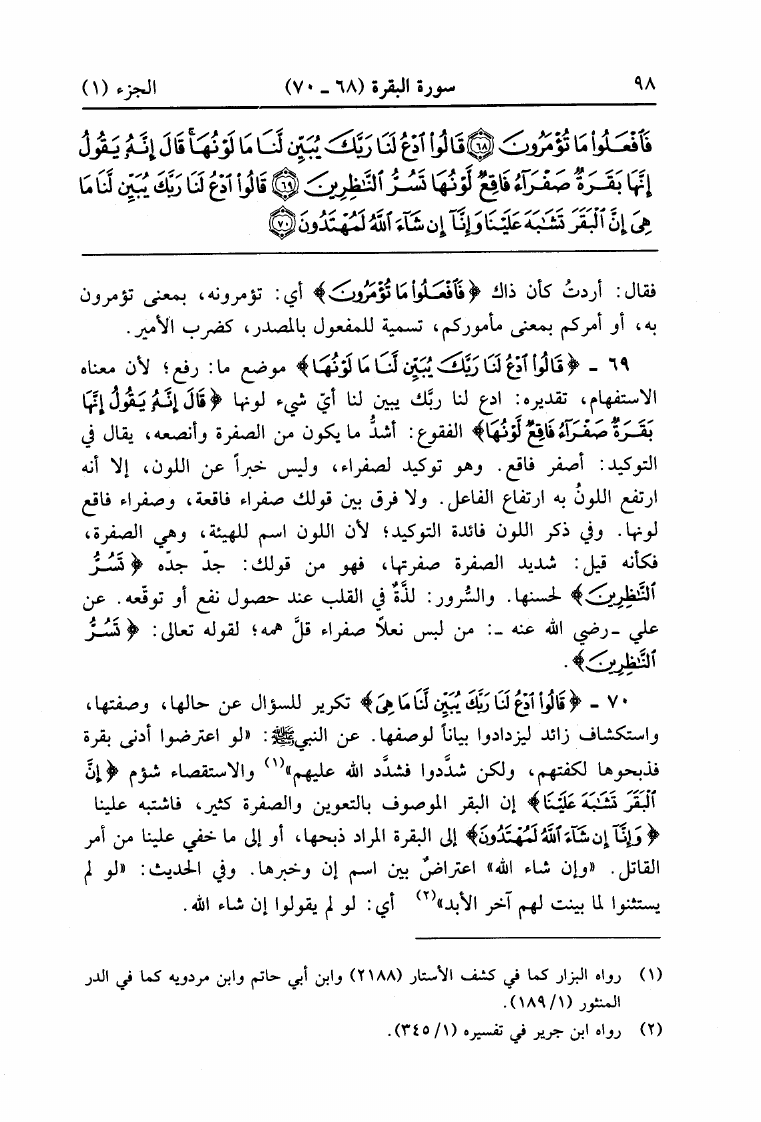 ٩٨ سورة البقرة (٦٨ ـ ٧٠) الجزء (١)
فَٱفْعَلُوا۟ مَا تُؤْمَرُونَ ﴿٦٨﴾ قَالُوا۟ ٱدْعُ لَنَا رَبَّكَ يُبَيِّن لَّنَا مَا لَوْنُهَا ۚ قَالَ إِنَّهُۥ يَقُولُ
إِنَّهَا بَقَرَةٌ صَفْرَآءُ فَاقِعٌ لَّوْنُهَا تَسُرُّ ٱلنَّٰظِرِينَ ﴿٦٩﴾ قَالُوا۟ ٱدْعُ لَنَا رَبَّكَ يُبَيِّن لَّنَا مَا
هِىَ إِنَّ ٱلْبَقَرَ تَشَٰبَهَ عَلَيْنَا وَإِنَّآ إِن شَآءَ ٱللَّهُ لَمُهْتَدُونَ ﴿٧٠﴾
فقال: أردتُ كأن ذاك ﴿فَٱفْعَلُوا۟ مَا تُؤْمَرُونَ﴾ أي: تؤمرونه، بمعنى تؤمرون
به، أو أمركم بمعنى مأموركم، تسمية للمفعول بالمصدر، كضرب الأمير.
٦٩ ـ ﴿قَالُوا۟ ٱدْعُ لَنَا رَبَّكَ يُبَيِّن لَّنَا مَا لَوْنُهَا﴾ موضع ما: رفع؛ لأن معناه
الاستفهام، تقديره: ادع لنا ربَّك يبين لنا أيّ شيء لونها ﴿قَالَ إِنَّهُۥ يَقُولُ إِنَّهَا
بَقَرَةٌ صَفْرَآءُ فَاقِعٌ لَّوْنُهَا﴾ الفقوع: أشدُّ ما يكون من الصفرة وأنصعه، يقال في
التوكيد: أصفر فاقع. وهو توكيد لصفراء، وليس خبراً عن اللون، إلا أنه
ارتفع اللونُ به ارتفاع الفاعل. ولا فرق بين قولك صفراء فاقعة، وصفراء فاقع
لونها. وفي ذكر اللون فائدة التوكيد؛ لأن اللون اسم للهيئة، وهي الصفرة،
فكأنه قيل: شديد الصفرة صفرتها، فهو من قولك: جدّ جدّه ﴿تَسُرُّ
ٱلنَّٰظِرِينَ﴾ لحسنها. والسُّرور: لذَّةٌ في القلب عند حصول نفع أو توقّعه. عن
علي ـ رضي الله عنه ـ: من لبس نعلاً صفراء قلَّ همه؛ لقوله تعالى: ﴿تَسُرُّ
ٱلنَّٰظِرِينَ﴾.
٧٠ ـ ﴿قَالُوا۟ ٱدْعُ لَنَا رَبَّكَ يُبَيِّن لَّنَا مَا هِىَ﴾ تكرير للسؤال عن حالها، وصفتها،
واستكشاف زائد ليزدادوا بياناً لوصفها. عن النبي ﷺ: «لو اعترضوا أدنى بقرة
فذبحوها لكفتهم، ولكن شدَّدوا فشدَّد الله عليهم»(١) والاستقصاء شؤم ﴿إِنَّ
ٱلْبَقَرَ تَشَٰبَهَ عَلَيْنَا﴾ إن البقر الموصوف بالتعوين والصفرة كثير، فاشتبه علينا
﴿وَإِنَّآ إِن شَآءَ ٱللَّهُ لَمُهْتَدُونَ﴾ إلى البقرة المراد ذبحها، أو إلى ما خفي علينا من أمر
القاتل. «وإن شاء الله» اعتراضٌ بين اسم إن وخبرها. وفي الحديث: «لو لم
يستثنوا لما بينت لهم آخر الأبد»(٢) أي: لو لم يقولوا إن شاء الله.
(١) رواه البزار كما في كشف الأستار (٢١٨٨) وابن أبي حاتم وابن مردويه كما في الدر
المنثور (١/١٨٩).
(٢) رواه ابن جرير في تفسيره (١/٣٤٥).